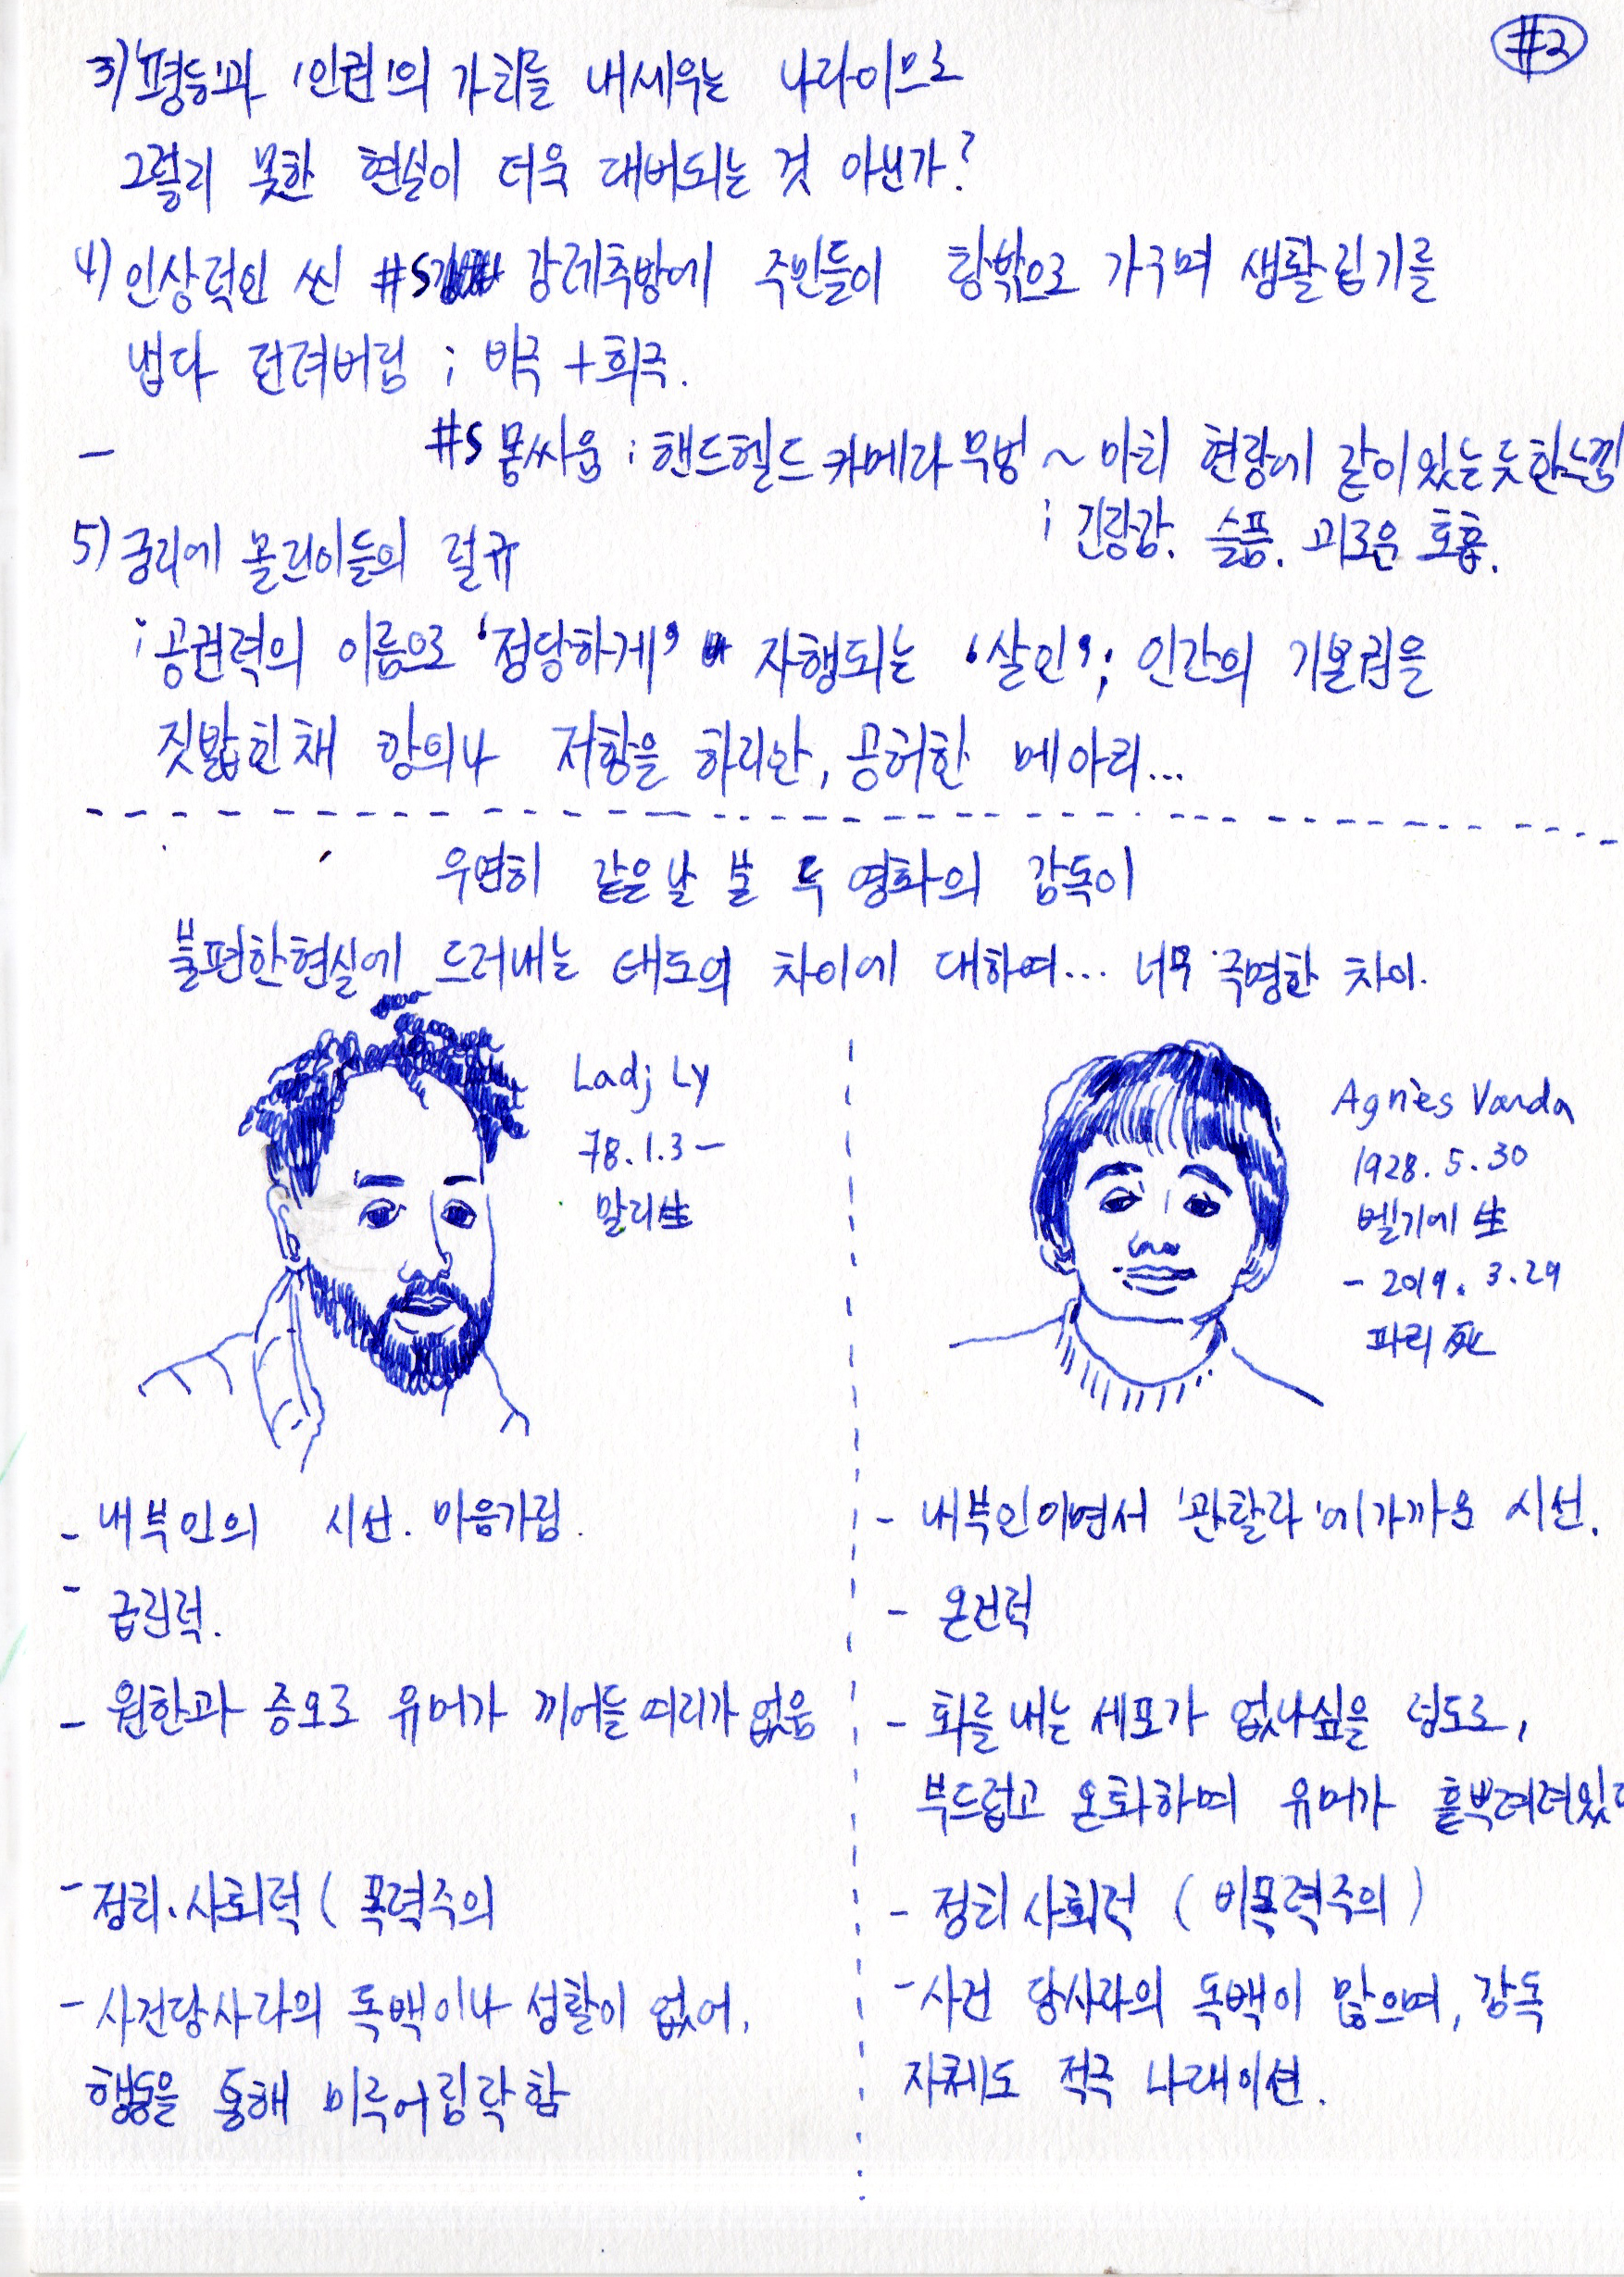 #2
3) '평등'과 '인권'의 가치를 내세우는 나라이므로
그렇지 못한 현실이 더욱 대비되는 것 아닌가?
4) 인상적인 씬 #S 강제추방에 주민들이 창밖으로 가구며 생활집기를
냅다 던져버림 ; 비극 + 희극.
— #S 몸싸움 ; 핸드헬드 카메라 무빙 ~ 마치 현장에 같이있는듯한느낌
; 긴장감. 슬픔. 괴로운 호흡.
5) 궁지에 몰린이들의 절규
; 공권력의 이름으로 '정당하게' 자행되는 '살인'; 인간의 기본권을
짓밟힌채 항의나 저항을 하지만, 공허한 메아리...
우연히 같은날 본 두 영화의 감독이
불편한현실에 드러내는 태도의 차이에 대하여... 너무 극명한 차이.
Ladj Ly
78.1.3 –
말리生
Agnès Varda
1928.5.30
벨기에 生
– 2019. 3.29
파리 死
- 내부인의 시선. 마음가짐.
- 급진적.
- 원한과 증오로 유머가 끼어들 여지가 없음
- 정치·사회적 ( 폭력주의
- 사건당사자의 독백이나 성찰이 없어,
행동을 통해 미루어짐작함
- 내부인이면서 '관찰자'에가까운 시선.
- 온건적
- 화를 내는 세포가 없나싶을 정도로,
부드럽고 온화하며 유머가 흩뿌려져있다
- 정치사회적 ( 비폭력주의 )
- 사건 당사자의 독백이 많으며, 감독
자체도 적극 나래이션.